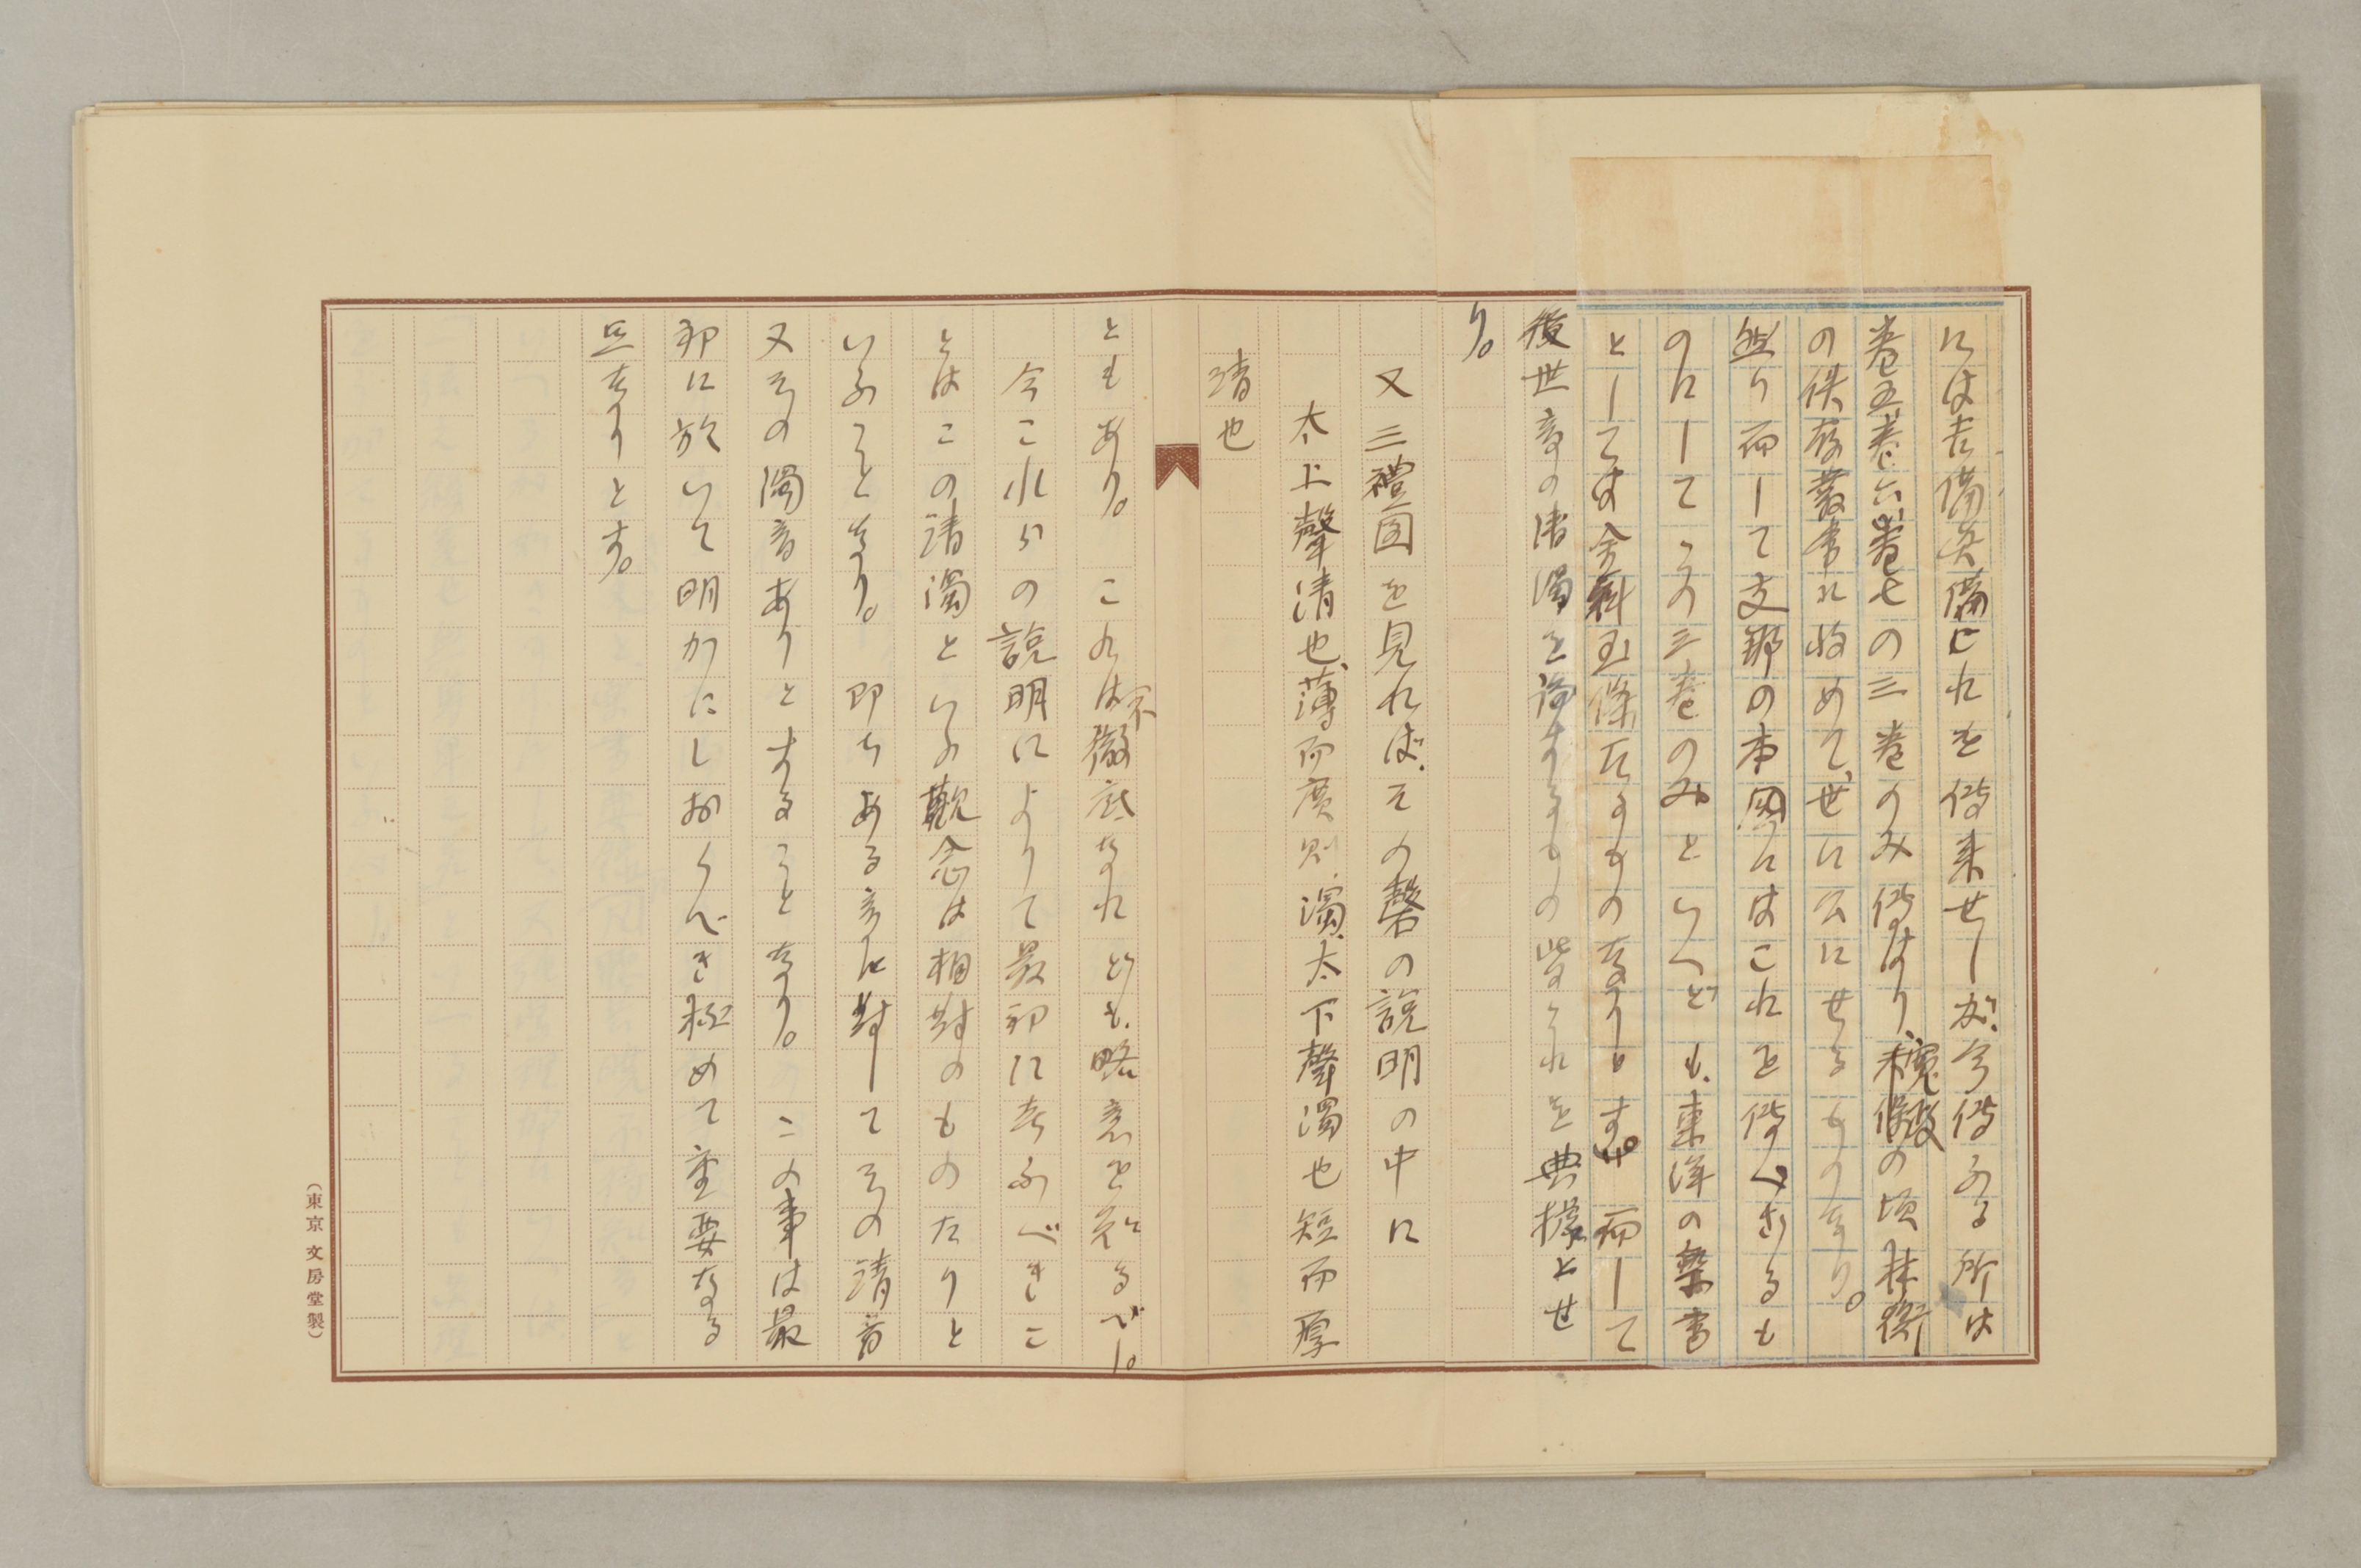 には吉備眞備これを傳来せしが、今傳ふる所は
巻五巻六巻七の三巻のみ傳はり、寛政の頃林衡
の佚存叢書に收めて、世に公にせるものなり。
然り而して支那の本國にはこれを傳へざるも
のにしてこの三巻のみといへども、東洋の樂書
としては金科玉條たるものなりとす。而して
後世音の清濁を論ずるもの皆これを典據とせ
り。
又三禮圖を見れば、その磬の説明の中に
太上聲清也、薄而廣則濁、太下聲濁也短而厚
清也
ともあり。これは不徹底なれども、略意を知るべし。
今これらの説明によりて最初に考ふべきこ
とはこの清濁といふ觀念は相對のものたりと
いふことなり。即ちある音に對してその清音
又その濁音ありとすることなり。この事は最
初に於いて明かにしおくべき極めて重要なる
点なりとす。
(東京 文房堂製)